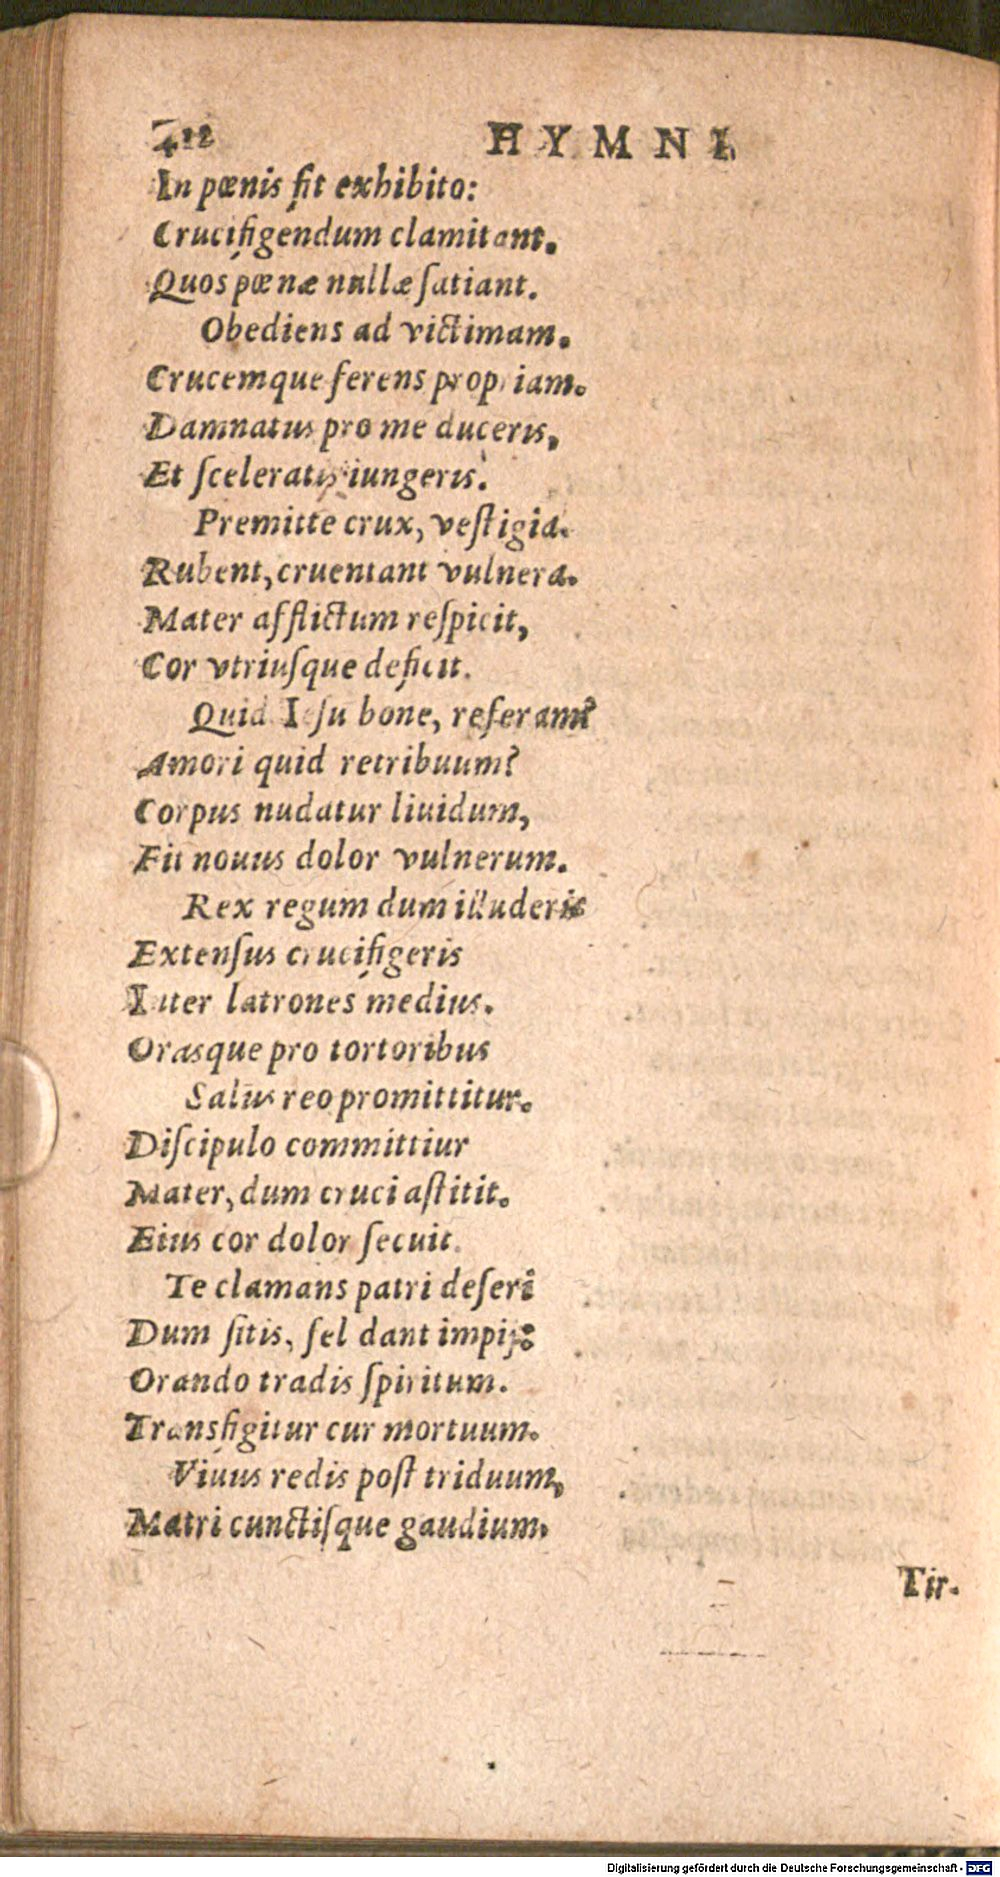 412 HYMNI,
In pœnis fit exhibito:
Crucifigendum clamitant.
Quos pœnæ nullæ ſatiant.
Obediens ad victimam.
Crucemque ferens propriam.
Damnatus pro me duceris,
Et ſceleratis iungeris.
Premitte crux, veſtigia.
Rubent, cruentant vulnera.
Mater afflictum reſpicit,
Cor vtriuſque deficit.
Quid Ieſu bone, referam?
Amori quid retribuum?
Corpus nudatur liuidum,
Fit nouus dolor vulnerum.
Rex regum dum illuderis
Extenſus crucifigeris
Inter latrones medius.
Orasque pro tortoribus
Salus reo promittitur.
Diſcipulo committiur
Mater, dum cruci aſtitit.
Eius cor dolor ſecuit.
Te clamans patri deſeri
Dum ſitis, fel dant impij:
Orando tradis ſpiritum.
Transfigitur cur mortuum.
Viuus redis poſt triduum,
Matri cunctiſque gaudium.
Tir.
Digitalisierung gefördert durch die Deutsche Forschungsgemeinschaft - DFG